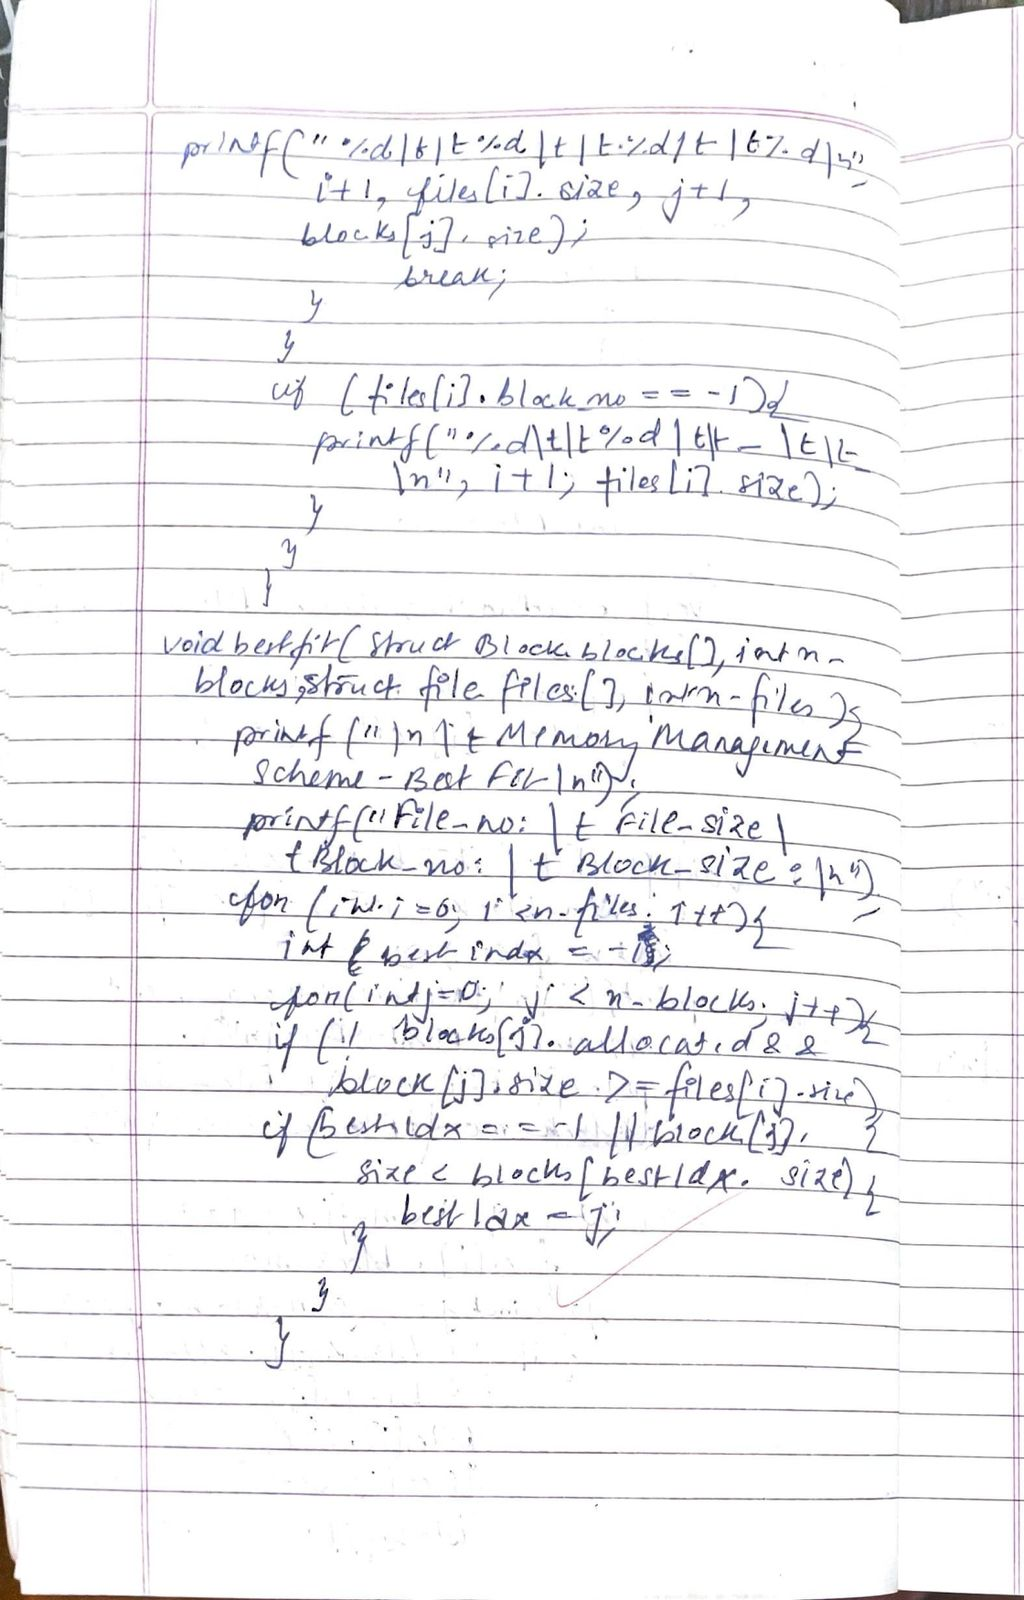 printf("%d|t|t%d|t|t%d|t|t%d|n",
i+1, files[i].size, j+1,
blocks[j].size);
break;
}
}
if (files[i].block_no == -1){
printf("%d\t|t%d|t|t-|t|t-
|n", i+1; files[i].size);
}
}
}
void bestfit(struct Block blocks[], int n-
blocks, struct file files[], int n-files){
printf("|n|t Memory Management
Scheme-Best Fit|n");
printf("File-no: |t File-size|
tBlock-no: |t Block-size:|n")
for (int i=0; i<n-files; i++){
int best indx = -1;
for(int j=0; j < n-blocks; j++){
if (! blocks[j].allocated &&
block[j].size >= files[i].size)
if (bestIdx == -1 || block[j]. {
size < blocks[bestIdx. size){
bestIdx = j;
}
}
}